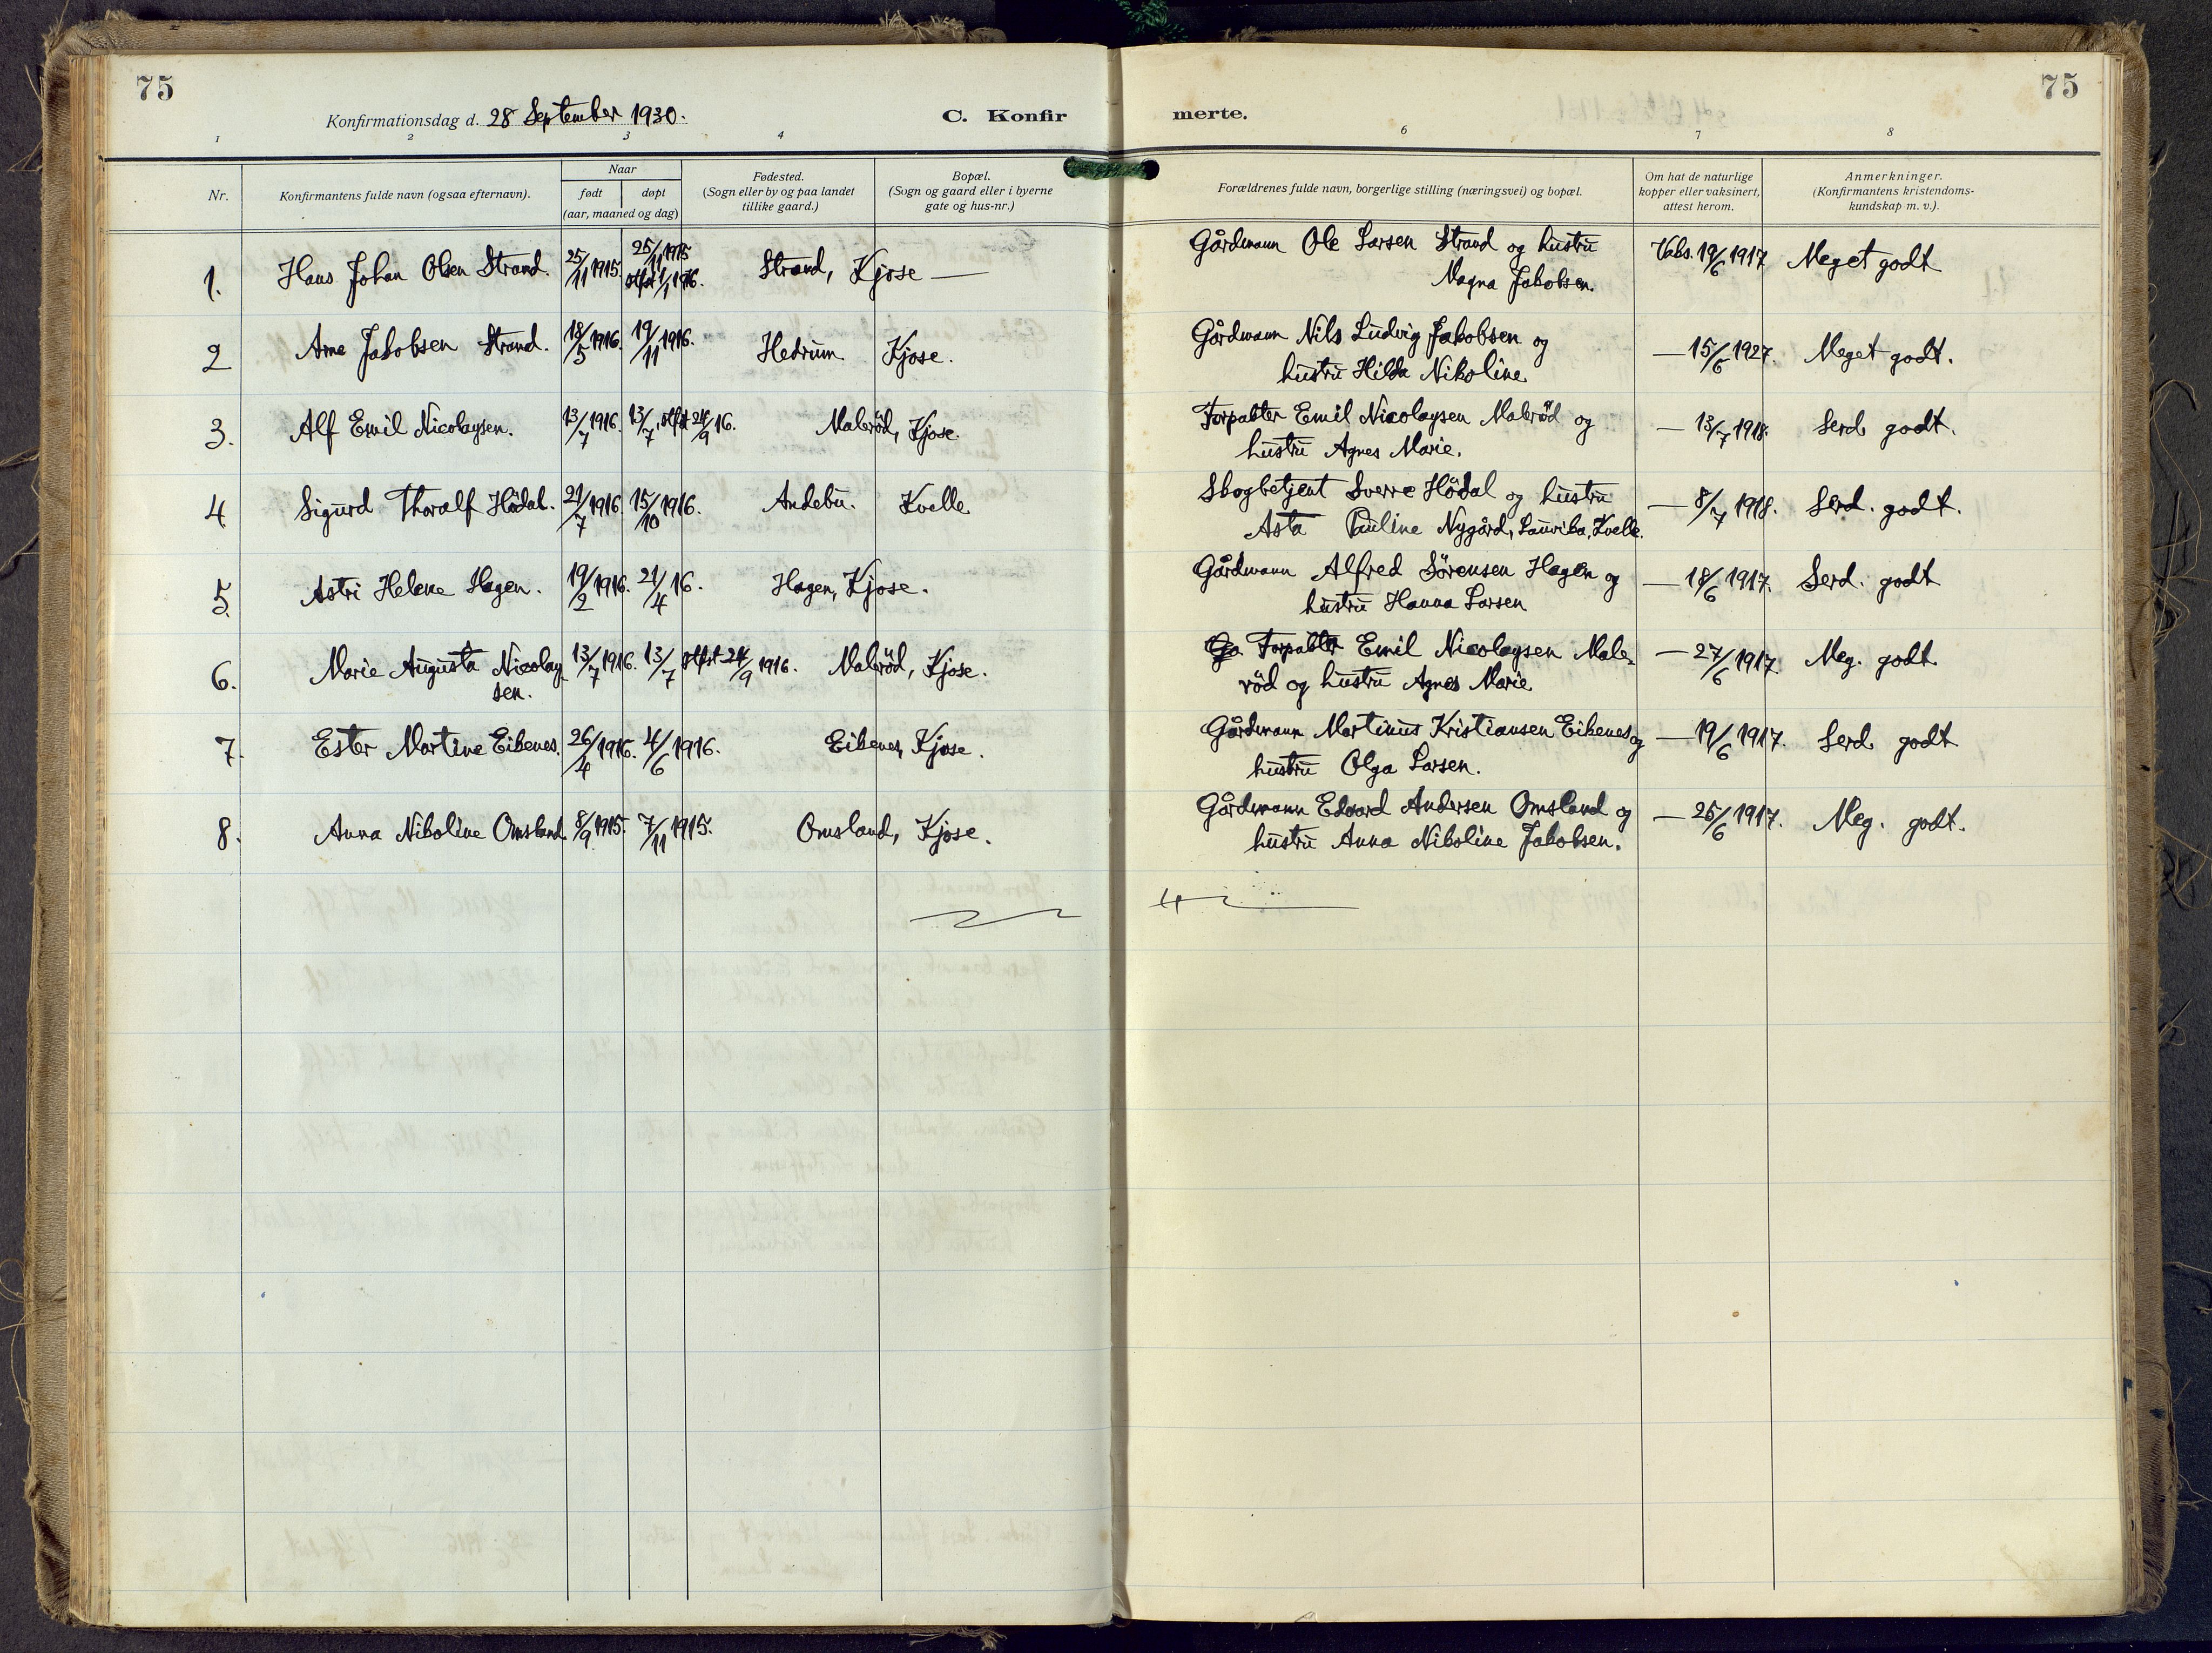 75
75
Konfirmationsdag d. 28 September 1930.
C. Konfir
merte.
1 2 3 4 6 7 8
Nr.
Konfirmantens fulde navn (ogsaa efternavn).
Naar
født
døpt
(aar, maaned og dag)
Fødested.
(Sogn eller by og paa landet
tillike gaard.)
Bopæl.
(Sogn og gaard eller i byerne
gate og hus-nr.)
Forældrenes fulde navn, borgerlige stilling (næringsvei) og bopæl.
Om hat de naturlige
kopper eller vaksinert,
attest herom.
Anmerkninger.
(Konfirmantens kristendoms-
kundskap m. v.).
1. Hans Johan Olsen Strand. 25/11 1915. 25/11 1915 stfst 1/1 1916. Strand, Kjose — Gårdmann Ole Larsen Strand og hustru Vaks. 19/6 1917 Meget godt
Magna Jakobsen.
2 Arne Jakobsen Strand. 18/5 1916. 19/11 1916. Hedrum Kjose. Gårdmann Nils Ludvig Jakobsen og — 15/6 1927. Meget godt.
hustru Hilda Nikoline
3. Alf Emil Nicolaysen. 13/7 1916. 13/7, stfst 24/9 16. Malerød, Kjose. Forpakter Emil Nicolaysen Malerød og — 13/7 1918. Serd. godt.
hustru Agnes Marie.
4 Sigurd Thoralf Hödal. 21/7 1916 15/10 1916. Andebu. Kvelle Skogbetjent Sverre Hödal og hustru — 8/7 1918. Serd. godt.
Asta Pauline Nygård, Lauvika, Kvelle.
5. Astri Helene Hagen. 19/2 1916. 21/4 16. Hagen, Kjose. Gårdmann Alfred Sörensen Hagen og — 18/6 1917. Serd. godt
hustru Hanna Larsen
6. Marie Augusta Nicolay- 13/7 1916. 13/7 stfst 24/9 1916. Malerød, Kjose. Forpakter Emil Nicolaysen Male- — 27/6 1917. Meg. godt
sen. röd og hustru Agnes Marie
7. Ester Martine Eikenes. 26/4 1916. 4/6 1916. Eikenes, Kjose. Gårdmann Martinus Kristiansen Eikenes og — 19/6 1917. Serd. godt
hustru Olga Larsen.
8. Anna Nikoline Omsland. 8/9 1915. 7/11 1915. Omsland, Kjose. Gårdmann Edvard Andersen Omsland og — 25/6 1917. Meg. godt.
hustru Anna Nikoline Jakobsen.